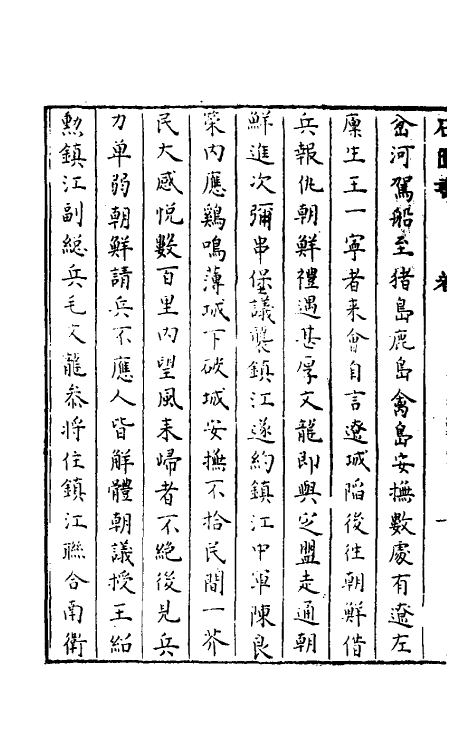 岔河駕船至猪島鹿島禽島安撫數處有遼左
廪生王一寧者来會自言遼城陷後徃朝鮮借
兵報仇朝鮮禮遇甚厚文龍即與之盟走通朝
鮮進次彌串堡議襲鎮江遂約鎮江中軍陳良
策内應鷄鳴薄城下破城安撫不拾民間一芥
民大感悦數百里内望風来歸者不絶後見兵
力单弱朝鮮請兵不應人皆解體朝議授王紹
勲鎮江副総兵毛文龍叅將住鎮江聯合南衛